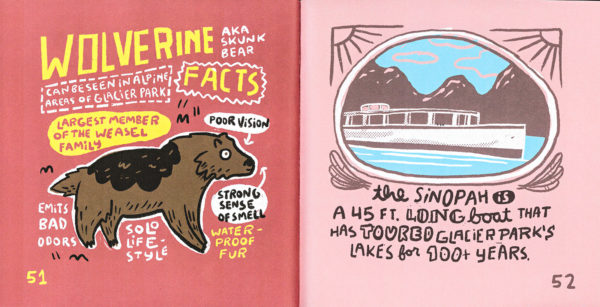 WOLVERINE
AKA
SKUNK
BEAR
FACTS
CAN BE SEEN IN ALPINE
AREAS OF GLACIER PARK!
LARGEST MEMBER
OF THE WEASEL
FAMILY
POOR VISION
STRONG
SENSE
OF SMELL
EMITS
BAD
ODORS
SOLO
LIFE-
STYLE
WATER-
PROOF
FUR
51
the SINOPAH IS
A 45 FT. LONG boat THAT
HAS TOURED GLACIER PARK'S
LAKES for 100+ YEARS.
52